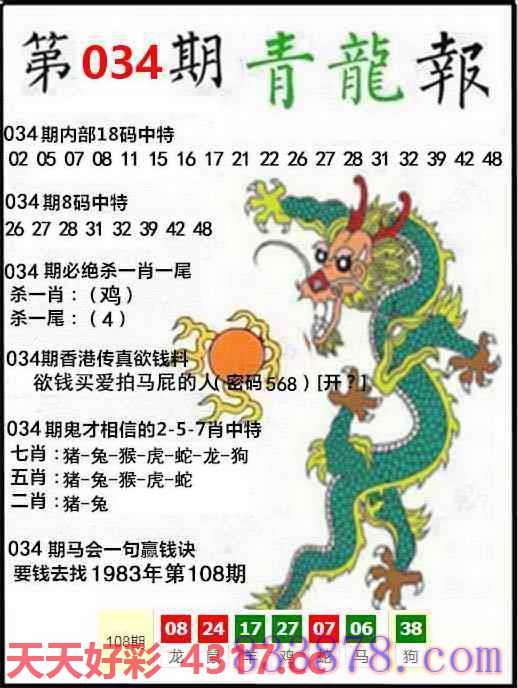 第034期 青龍報
034期内部18码中特
02 05 07 08 11 15 16 17 21 22 26 27 28 31 32 39 42 48
034期8码中特
26 27 28 31 32 39 42 48
034 期必绝杀一肖一尾
杀一肖：（鸡）
杀一尾：（4）
034期香港传真欲钱料
欲钱买爱拍马屁的人(密码568)[开？]
034期鬼才相信的2-5-7肖中特
七肖：猪-兔-猴-虎-蛇-龙-狗
五肖：猪-兔-猴-虎-蛇
二肖：猪-兔
034 期马会一句赢钱诀
要钱去找1983年第108期
108期 08 24 17 27 07 06 38
龙 鼠 羊 鸡 蛇 马 狗
天天好彩 4317.cc